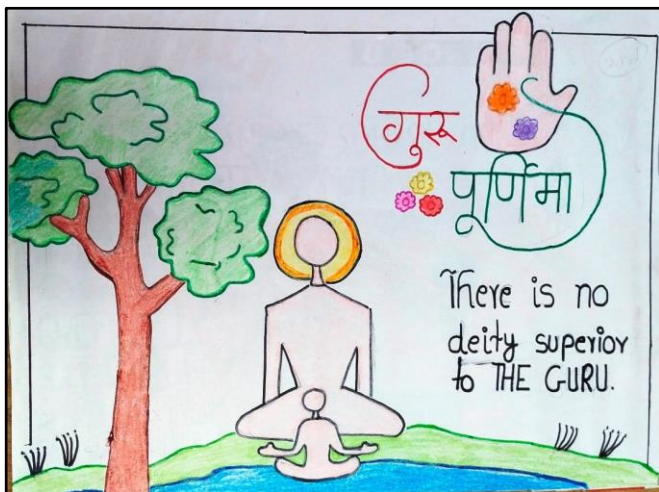 गुरु
पूर्णिमा
There is no
deity superior
to THE GURU.